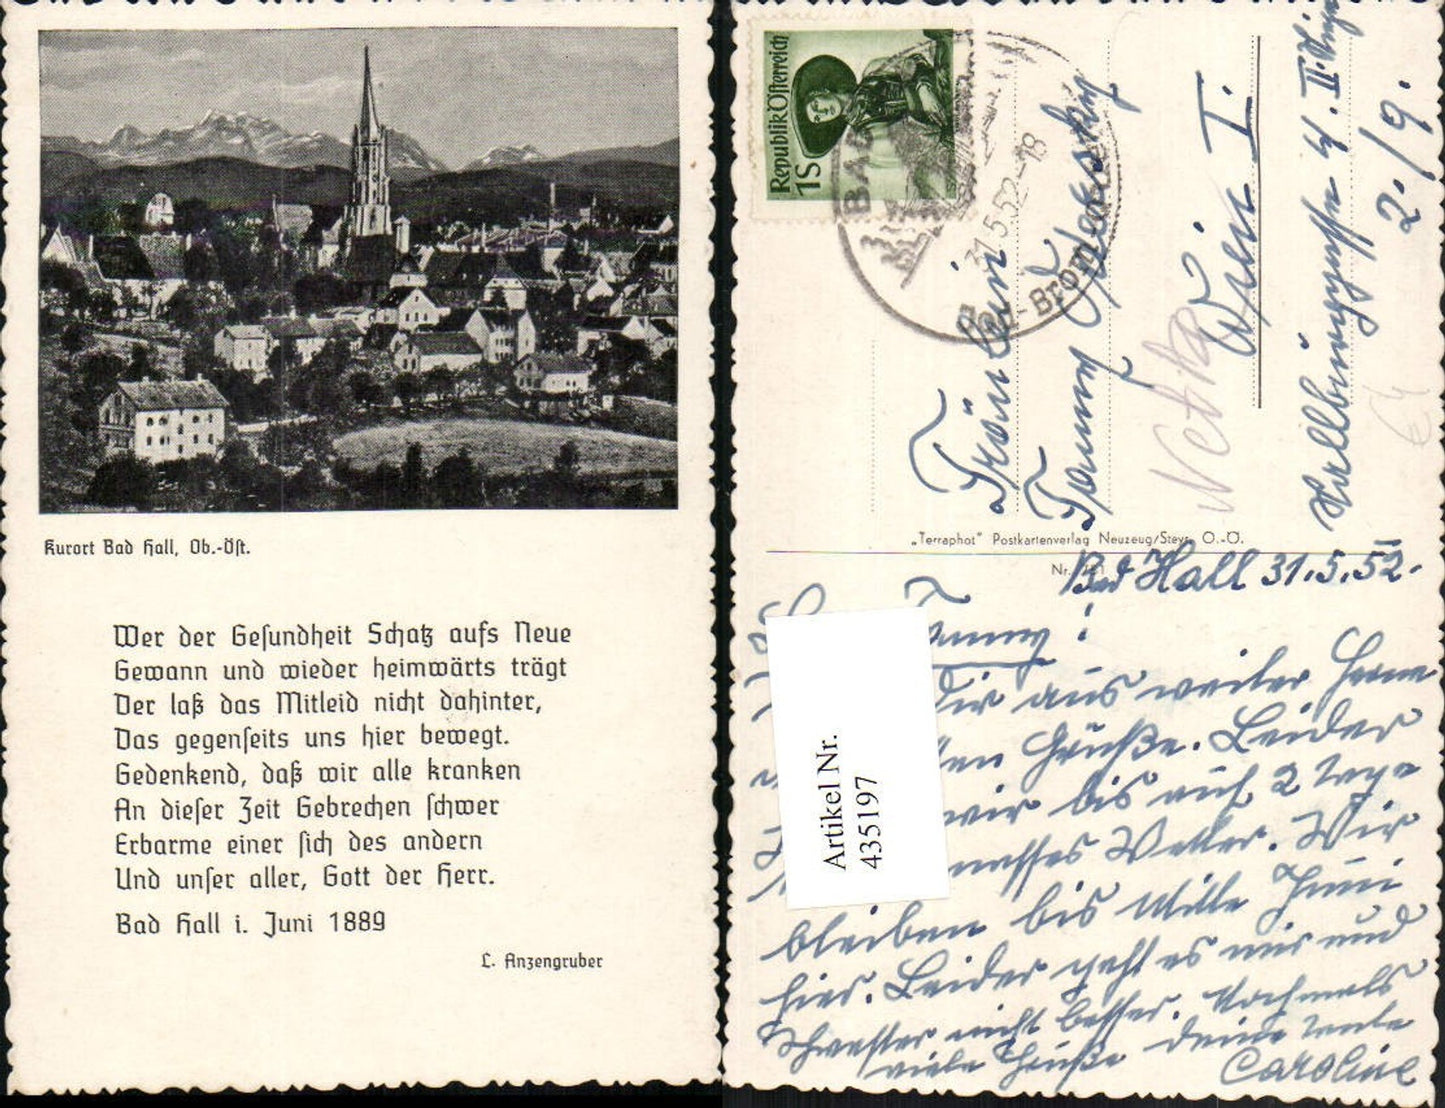 Kurort Bad Hall, Ob.-Öst.
Wer der Gesundheit Schatz aufs Neue
Gewann und wieder heimwärts trägt
Der laß das Mitleid nicht dahinter,
Das gegenseits uns hier bewegt.
Gedenkend, daß wir alle kranken
An dieser Zeit Gebrechen schwer
Erbarme einer sich des andern
Und unser aller, Gott der Herr.
Bad Hall i. Juni 1889
L. Anzengruber
Republik Österreich
1S
BAD
31.5.52-18
Jod-Brom
Fräulein
Fanny
Wien I.
2./9.
„Terraphot" Postkartenverlag Neuzeug/Steyr, O.-Ö.
Nr.
Bad Hall 31.5.52.
Fanny!
Dir aus weiter Ferne
Grüße. Leider
wir bis auf 2 Tage
nasses Wetter. Wir
bleiben bis Mitte Juni
hier. Leider geht es mir und
Schwester nicht besser. Nochmals
viele Grüße Deine Tante
Caroline
Artikel Nr.
435197